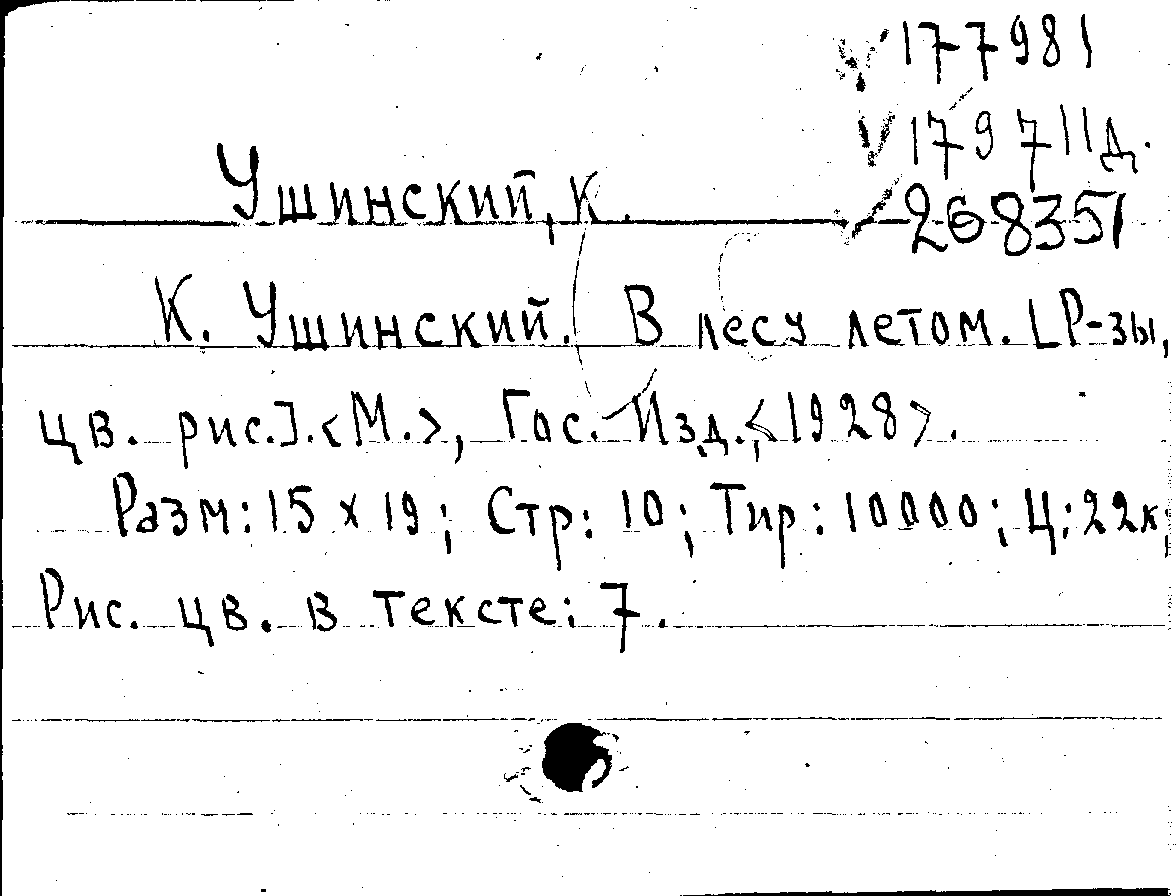 V 177981
V 179711д.
Ушинский, К.
V 268351
К. Ушинский. В лесу летом. [Р-зы,
цв. рис.]. <М.>, Гос. Изд., <1928>.
Разм: 15 х 19; Стр: 10; Тир: 10000; Ц: 22к;
Рис. цв. в тексте: 7.